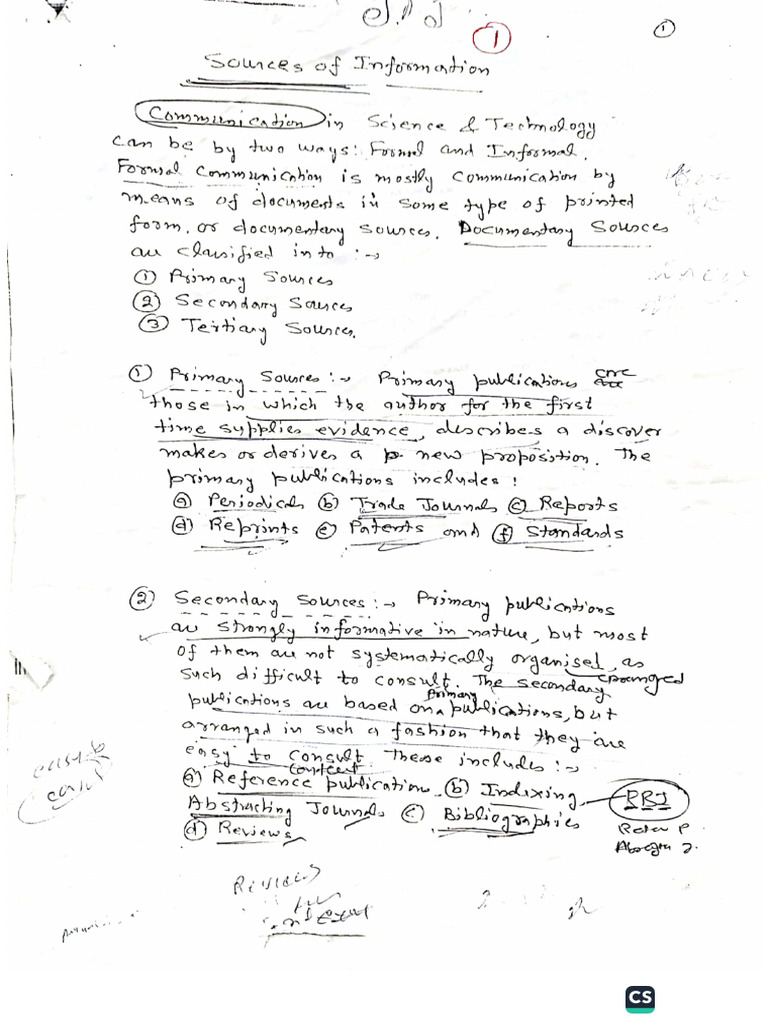 1
1
Sources of Information
Communication in Science & Technology
can be by two ways: Formal and Informal.
Formal Communication is mostly communication by
means of documents in some type of printed
form. or documentary sources. Documentary Sources
are classified in to :→
1 Primary Sources
2 Secondary Sources
3 Tertiary Sources.
1 Primary Sources :→ Primary publications are
those in which the author for the first
time supplies evidence, describes a discover
makes or derives a new proposition. The
primary publications includes :
a Periodicals b Trade Journals c Reports
d Reprints e Patents and f Standards
2 Secondary Sources :→ Primary publications
are strongly informative in nature, but most
of them are not systematically organised, as
arranged
such difficult to consult. The secondary
Primary
publications are based on publications, but
arranged in such a fashion that they are
easy to consult. These includes :→
content
a Reference publications b Indexing,
Abstracting Journals c Bibliographies
d Reviews
RBI
Reviews
CS